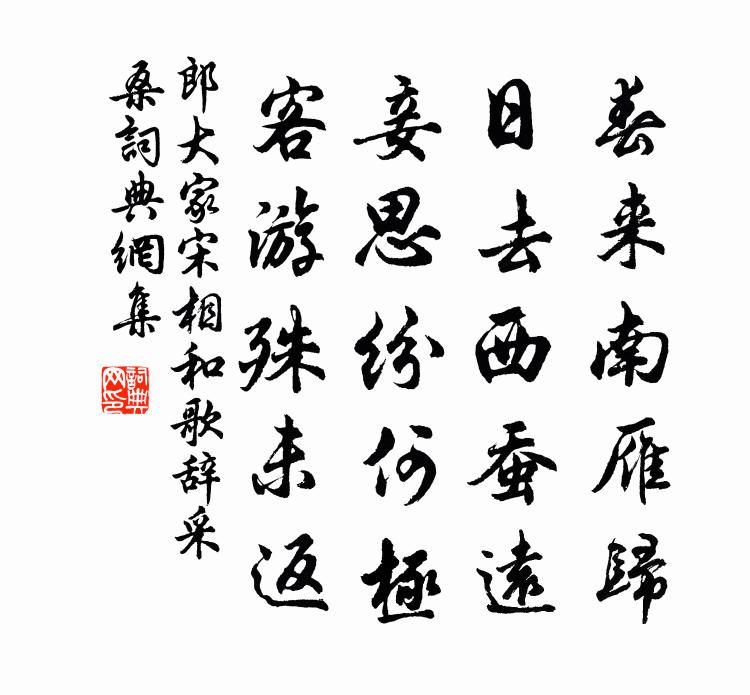 春来南雁歸
日去西蚕遠
妾思紛何極
客游殊未返
郎大家宋相和歌辞采
桑詞典網集
詞典
网印